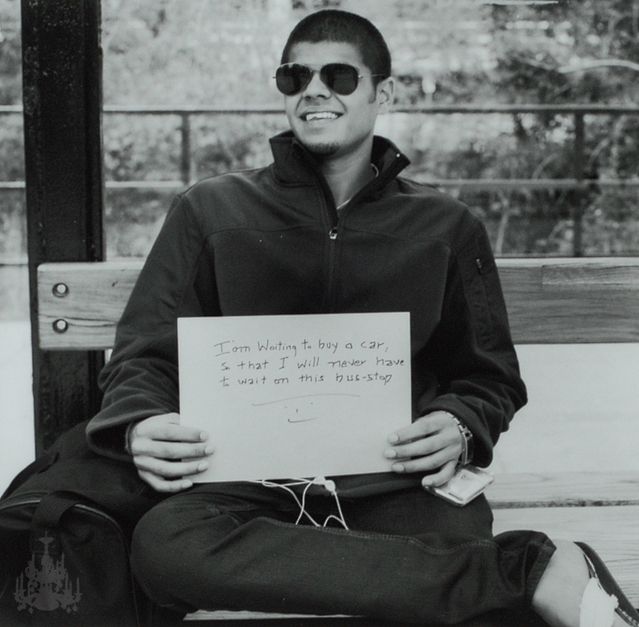 I'm Waiting to buy a car,
so that I will never have
to wait on this bus-stop